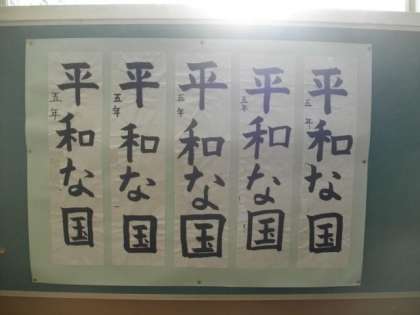 平和な国
五年
平和な国
五年
平和な国
五年
平和な国
五年
平和な国
五年